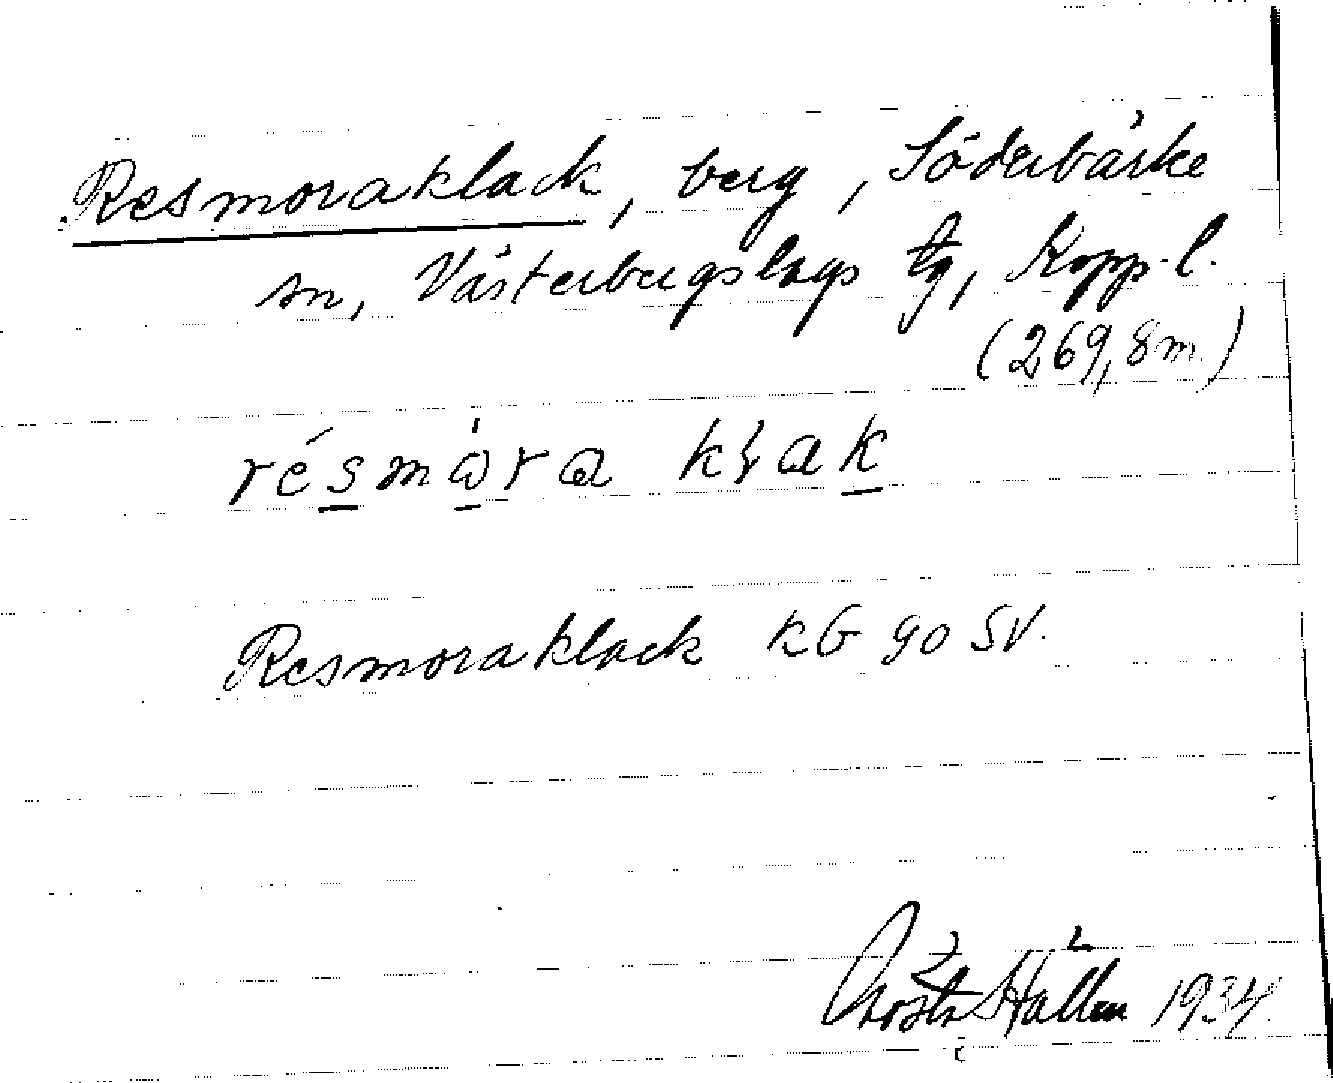 Resmoraklack, berg, Söderbärke
sn, Västerbergslags tg, Kopp. l.
(269,8 m.)
résmɷ̀ra kłak
Resmoraklack KB 90 SV.
Hållen 1934